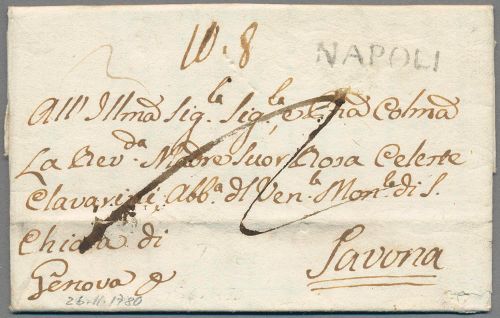 10.8
NAPOLI
All'Illma Sig.la Sig.la e Pna Colma
La Rev.da Madre Suor Rosa Celeste
Clavarini Abb.a dl Ven.la Mon.la di S.
Chiara di
Genova e
Savona
26.11.1780